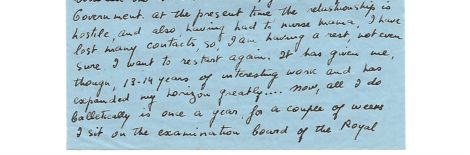 Government, at the present time the relationship is
hostile, and also having had to nurse mama, I have
lost many contacts, so, I am having a rest, not even
sure I want to restart again. It has given me,
though, 13-14 years of interesting work and has
expanded my horizon greatly.... now, all I do
balletically is once a year, for a couple of weeks
I sit on the examination board of the Royal